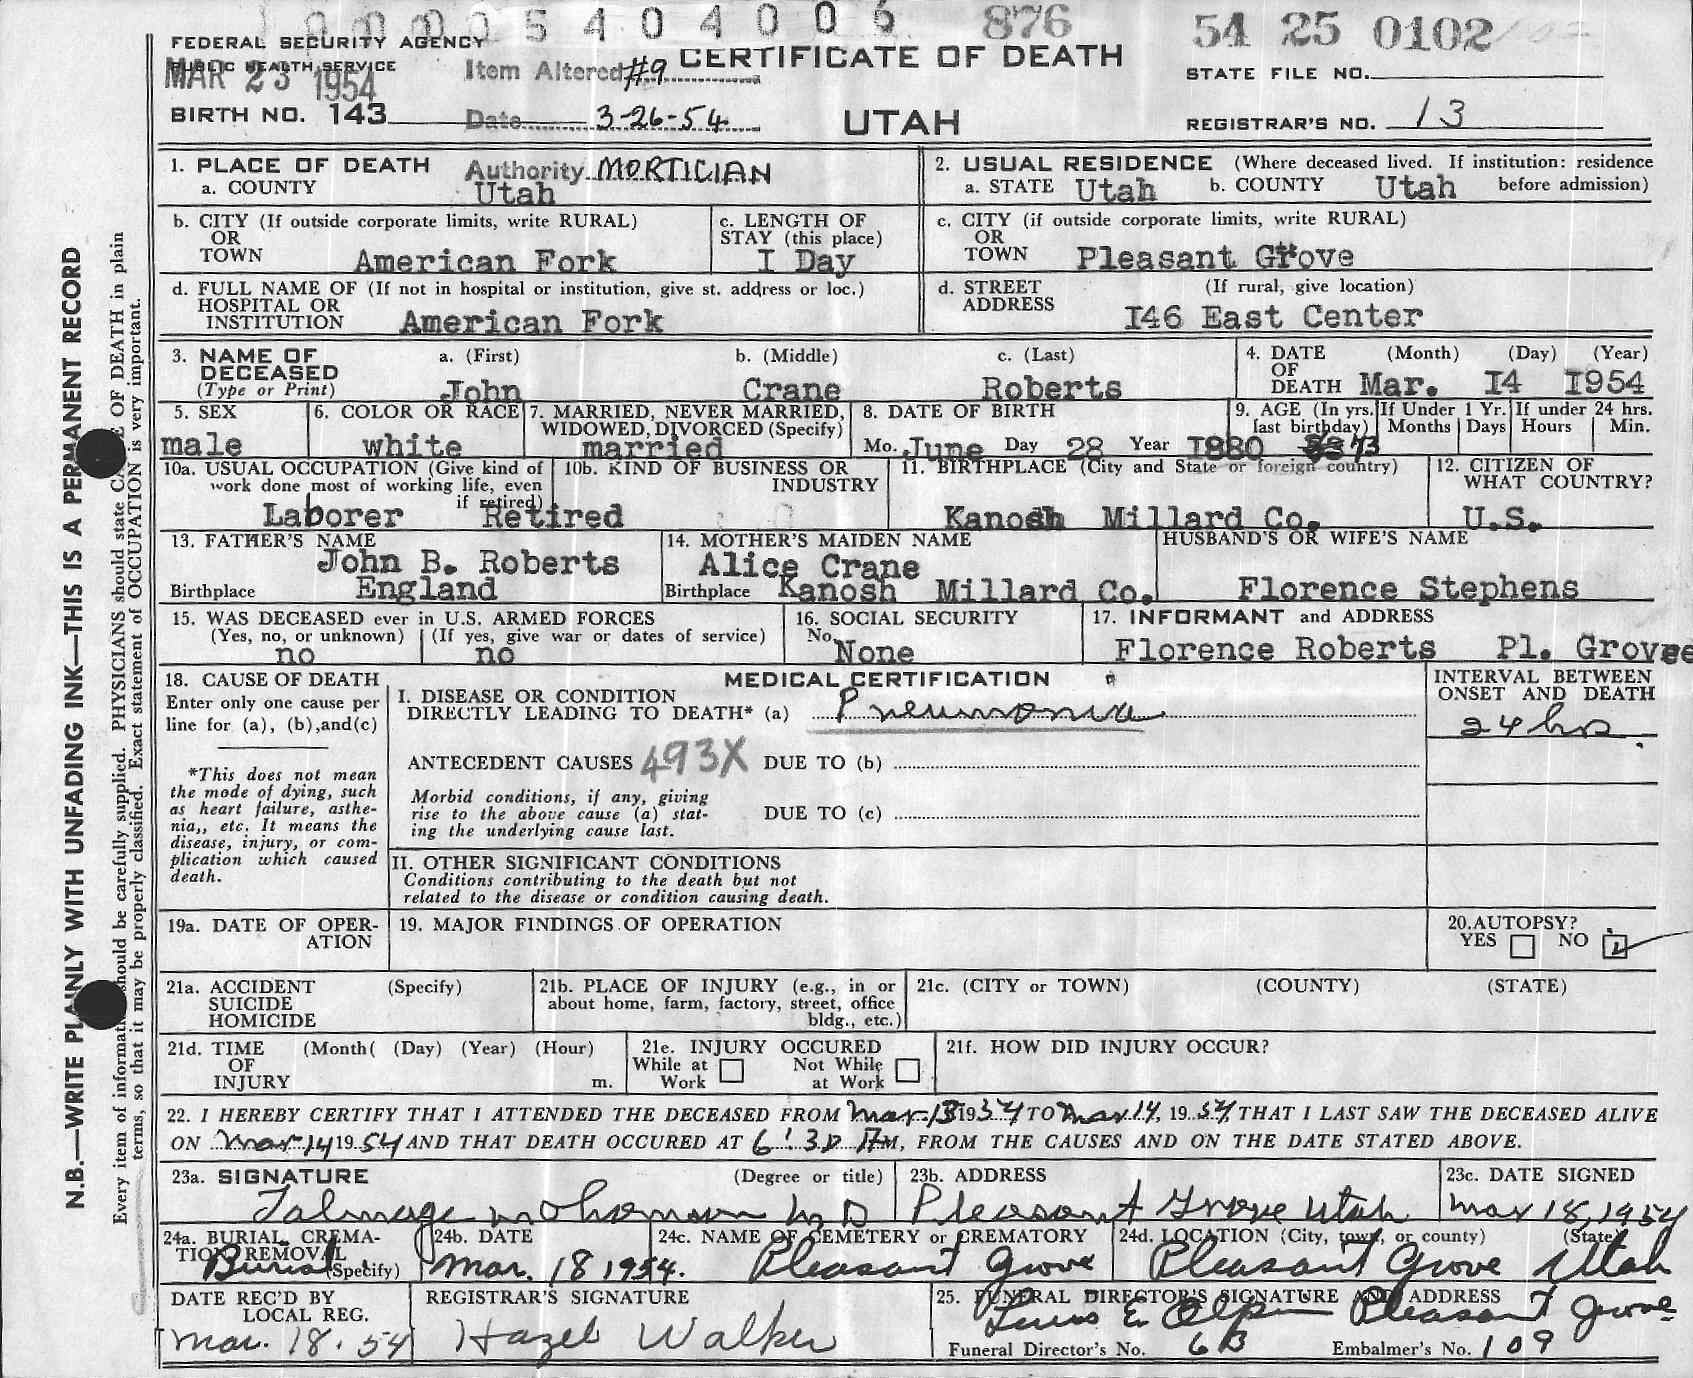 100005404006 876 54 25 0102
FEDERAL SECURITY AGENCY
PUBLIC HEALTH SERVICE
MAR 23 1954
Item Altered #9
CERTIFICATE OF DEATH
STATE FILE NO.
BIRTH NO. 143
Date 3-26-54
UTAH
REGISTRAR'S NO. 13
1. PLACE OF DEATH
Authority MORTICIAN
a. COUNTY Utah
2. USUAL RESIDENCE (Where deceased lived. If institution: residence before admission)
a. STATE Utah b. COUNTY Utah
b. CITY (If outside corporate limits, write RURAL)
OR
TOWN American Fork
c. LENGTH OF
STAY (this place)
I Day
c. CITY (if outside corporate limits, write RURAL)
OR
TOWN Pleasant Grove
d. FULL NAME OF (If not in hospital or institution, give st. address or loc.)
HOSPITAL OR
INSTITUTION American Fork
d. STREET (If rural, give location)
ADDRESS I46 East Center
3. NAME OF DECEASED
(Type or Print)
a. (First) b. (Middle) c. (Last)
John Crane Roberts
4. DATE OF DEATH (Month) (Day) (Year)
Mar. I4 I954
5. SEX
male
6. COLOR OR RACE
white
7. MARRIED, NEVER MARRIED,
WIDOWED, DIVORCED (Specify)
married
8. DATE OF BIRTH
Mo. June Day 28 Year I880
9. AGE (In yrs. last birthday) 73
If Under 1 Yr. Months Days
If under 24 hrs. Hours Min.
10a. USUAL OCCUPATION (Give kind of
work done most of working life, even
if retired)
Laborer Retired
10b. KIND OF BUSINESS OR
INDUSTRY
11. BIRTHPLACE (City and State or foreign country)
Kanosh Millard Co.
12. CITIZEN OF
WHAT COUNTRY?
U.S.
13. FATHER'S NAME
John B. Roberts
Birthplace England
14. MOTHER'S MAIDEN NAME
Alice Crane
Birthplace Kanosh Millard Co.
HUSBAND'S OR WIFE'S NAME
Florence Stephens
15. WAS DECEASED ever in U.S. ARMED FORCES
(Yes, no, or unknown) (If yes, give war or dates of service)
no no
16. SOCIAL SECURITY
No. None
17. INFORMANT and ADDRESS
Florence Roberts Pl. Grove
18. CAUSE OF DEATH
Enter only one cause per
line for (a), (b),and(c)
*This does not mean
the mode of dying, such
as heart failure, asthe-
nia,, etc. It means the
disease, injury, or com-
plication which caused
death.
MEDICAL CERTIFICATION
I. DISEASE OR CONDITION
DIRECTLY LEADING TO DEATH* (a) Pneumonia
ANTECEDENT CAUSES 493X DUE TO (b)
Morbid conditions, if any, giving
rise to the above cause (a) stat-
ing the underlying cause last.
DUE TO (c)
II. OTHER SIGNIFICANT CONDITIONS
Conditions contributing to the death but not
related to the disease or condition causing death.
INTERVAL BETWEEN
ONSET AND DEATH
24 hrs
19a. DATE OF OPER-
ATION
19. MAJOR FINDINGS OF OPERATION
20.AUTOPSY?
YES NO
21a. ACCIDENT (Specify)
SUICIDE
HOMICIDE
21b. PLACE OF INJURY (e.g., in or
about home, farm, factory, street, office
bldg., etc.)
21c. (CITY or TOWN) (COUNTY) (STATE)
21d. TIME (Month( (Day) (Year) (Hour)
OF
INJURY m.
21e. INJURY OCCURED
While at Work Not While at Work
21f. HOW DID INJURY OCCUR?
22. I HEREBY CERTIFY THAT I ATTENDED THE DECEASED FROM Mar 13 1954 TO Mar 14, 1954, THAT I LAST SAW THE DECEASED ALIVE
ON Mar 14 1954 AND THAT DEATH OCCURED AT 6:30 M, FROM THE CAUSES AND ON THE DATE STATED ABOVE.
23a. SIGNATURE (Degree or title)
Talmage MD
23b. ADDRESS
Pleasant Grove Utah
23c. DATE SIGNED
Mar 18, 1954
24a. BURIAL, CREMA-
TION REMOVAL
(Specify)
Burial
24b. DATE
Mar. 18 1954.
24c. NAME OF CEMETERY or CREMATORY
Pleasant Grove
24d. LOCATION (City, town, or county) (State)
Pleasant Grove Utah
DATE REC'D BY
LOCAL REG.
Mar. 18. 54
REGISTRAR'S SIGNATURE
Hazel Walker
25. FUNERAL DIRECTOR'S SIGNATURE AND ADDRESS
E. Olpin Pleasant Grove
Funeral Director's No. 6B Embalmer's No. 109
N.B.—WRITE PLAINLY WITH UNFADING INK—THIS IS A PERMANENT RECORD
Every item of information should be carefully supplied. PHYSICIANS should state CAUSE OF DEATH in plain
terms, so that it may be properly classified. Exact statement of OCCUPATION is very important.